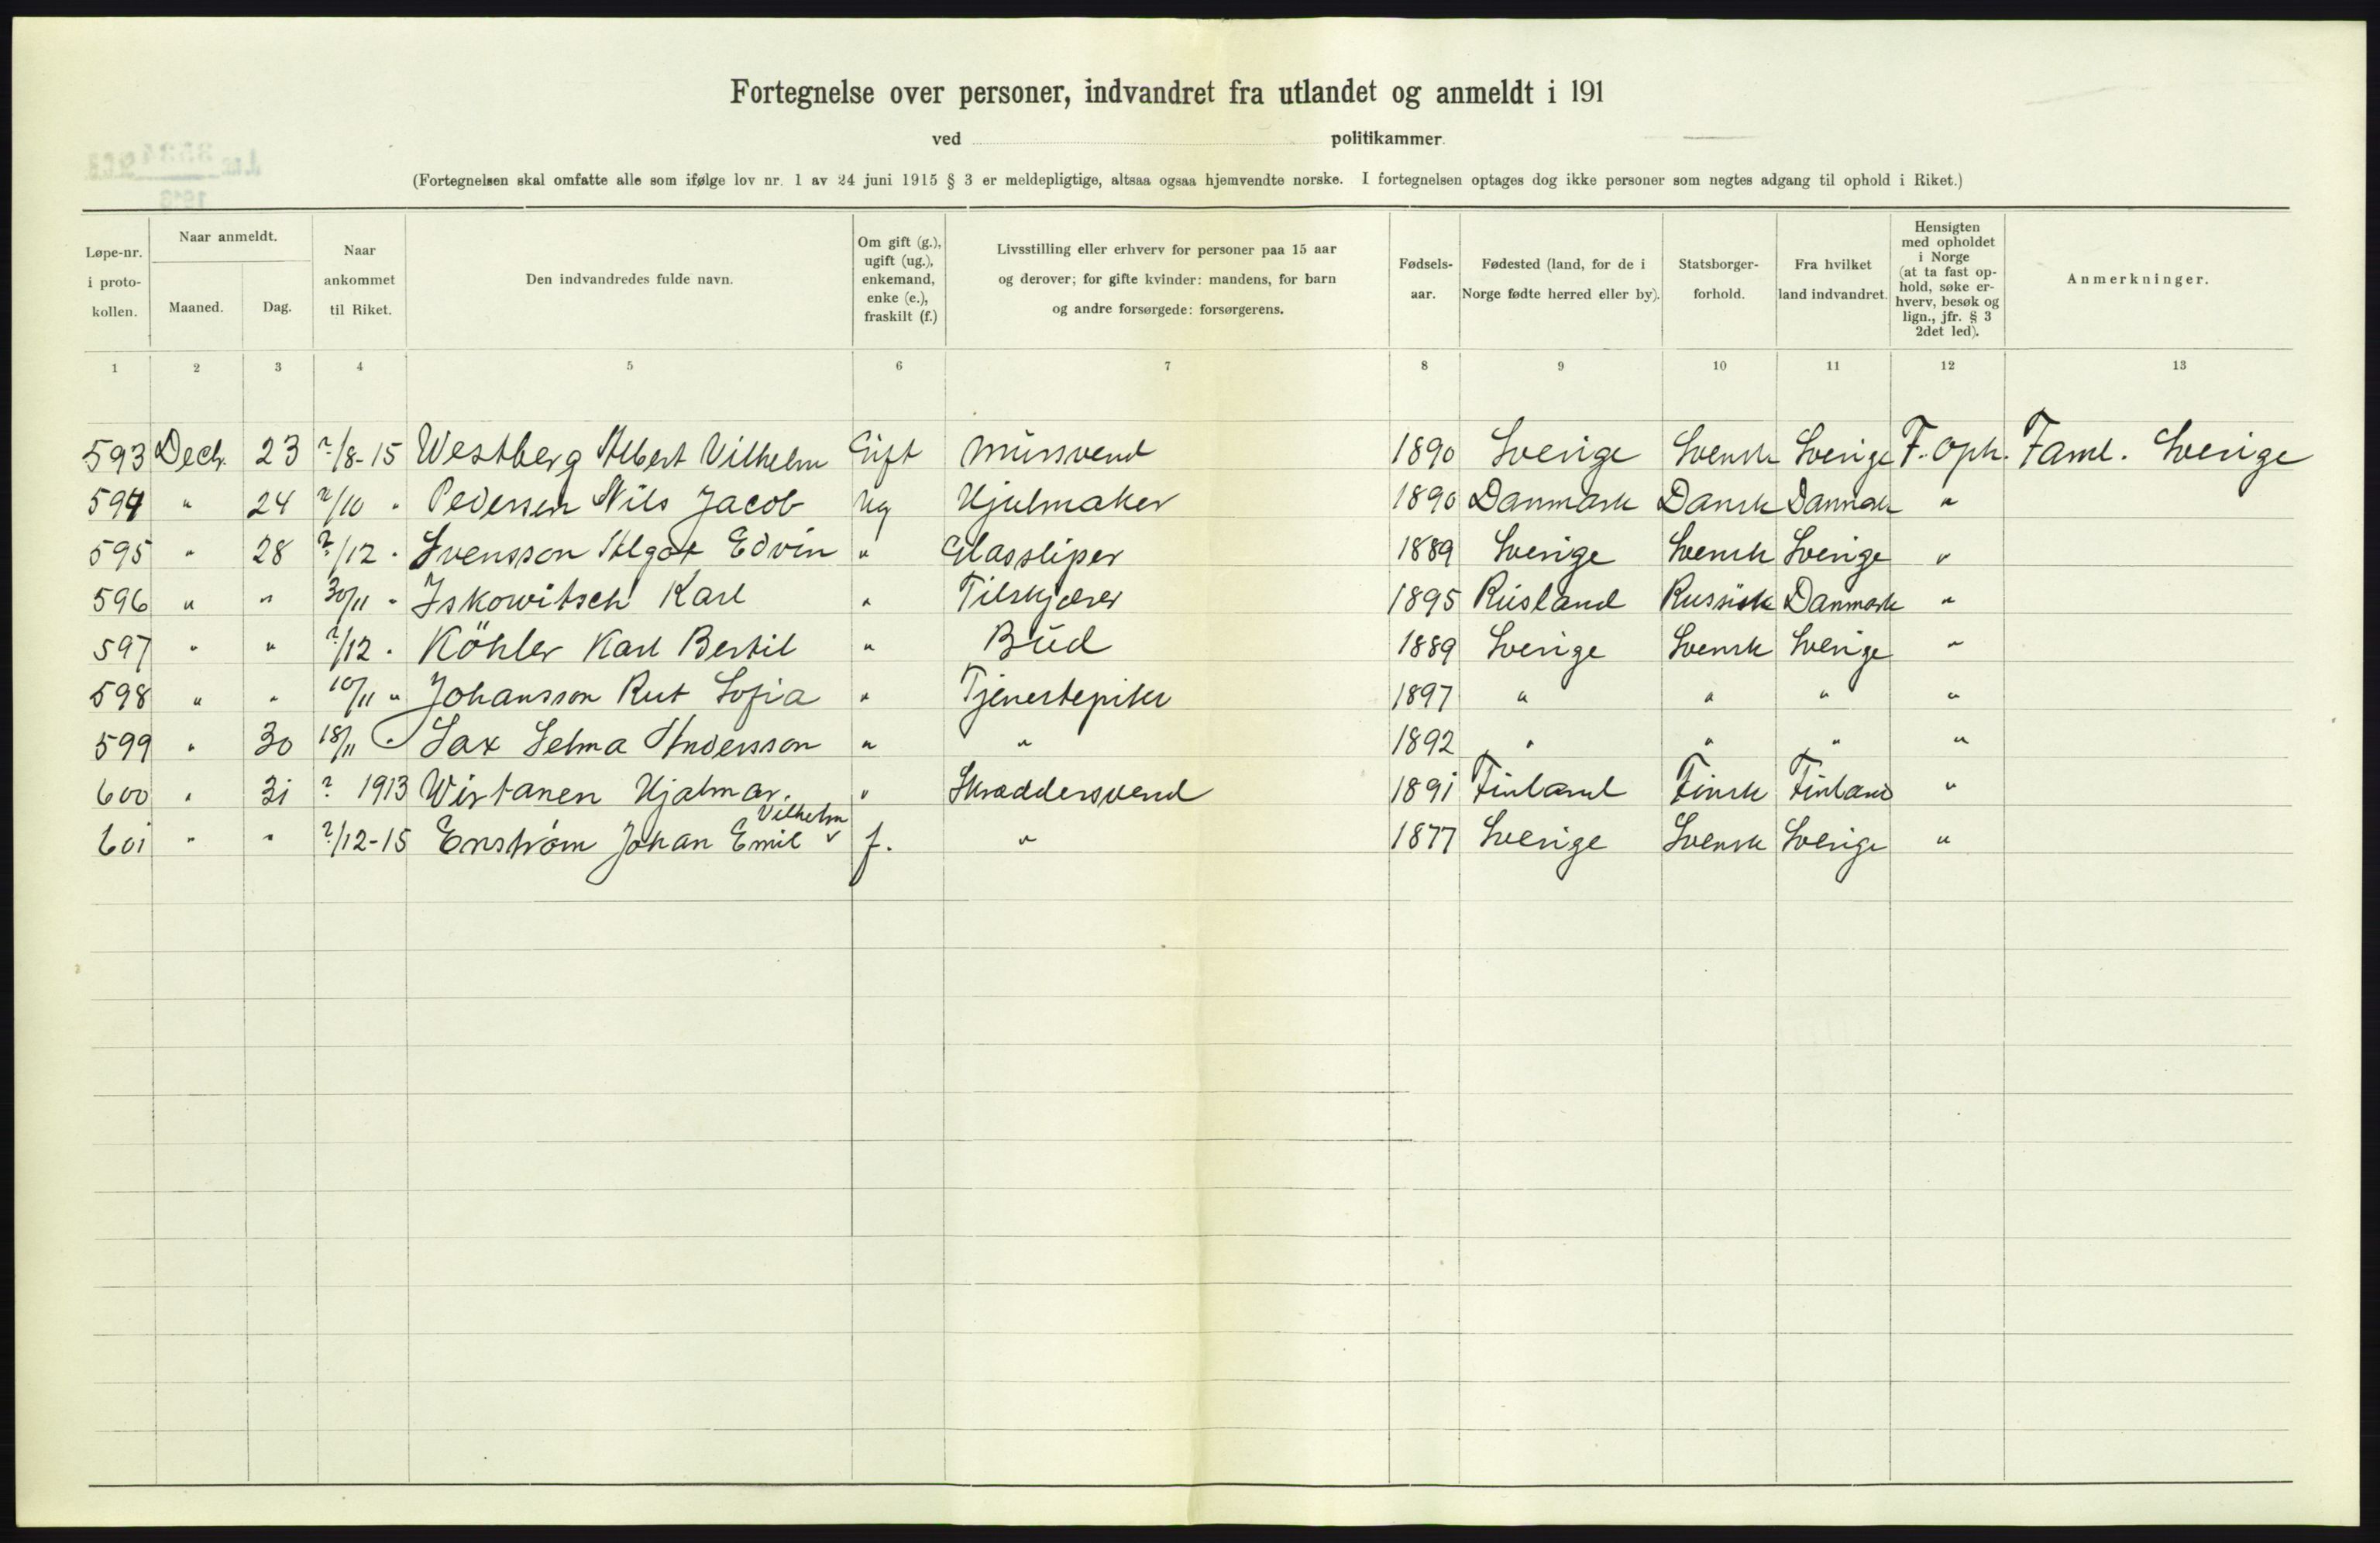 Fortegnelse over personer, indvandret fra utlandet og anmeldt i 191
ved politikammer.
(Fortegnelsen skal omfatte alle som ifølge lov nr. 1 av 24 juni 1915 § 3 er meldepligtige, altsaa ogsaa hjemvendte norske. I fortegnelsen optages dog ikke personer som negtes adgang til ophold i Riket.)
Løpe-nr. i proto-kollen.
Naar anmeldt.
Maaned.
Dag.
Naar ankommet til Riket.
Den indvandredes fulde navn.
Om gift (g.), ugift (ug.), enkemand, enke (e.), fraskilt (f.)
Livsstilling eller erhverv for personer paa 15 aar og derover; for gifte kvinder: mandens, for barn og andre forsørgede: forsørgerens.
Fødsels-aar.
Fødested (land, for de i Norge fødte herred eller by).
Statsborger-forhold.
Fra hvilket land indvandret.
Hensigten med opholdet i Norge (at ta fast op-hold, søke er-hverv, besøk og lign., jfr. § 3 2det led).
Anmerkninger.
1 2 3 4 5 6 7 8 9 10 11 12 13
593 Decb. 23 ?/8-15 Westberg Albert Vilhelm Gift Mursvend 1890 Sverige Svensk Sverige F. oph. Faml. Sverige
594 " 24 ?/10 " Pedersen Nils Jacob Ug Hjulmaker 1890 Danmark Dansk Danmark "
595 " 28 ?/12 " Svensson Algot Edvin " Glassliper 1889 Sverige Svensk Sverige "
596 " " 30/11 " Iskowitsch Karl " Tilskjærer 1895 Rusland Russisk Danmark "
597 " " ?/12 " Köhler Karl Bertil " Bud 1889 Sverige Svensk Sverige "
598 " " 10/11 " Johansson Rut Sofia " Tjenestepike 1897 " " " "
599 " 30 18/11 " Sax Selma Andersson " " 1892 " " " "
600 " 31 ? 1913 Wirtanen Hjalmar. " Skræddersvend 1891 Finland Finsk Finland "
601 " " ?/12-15 Enstrøm Johan Emil Vilhelm f. " 1877 Sverige Svensk Sverige "